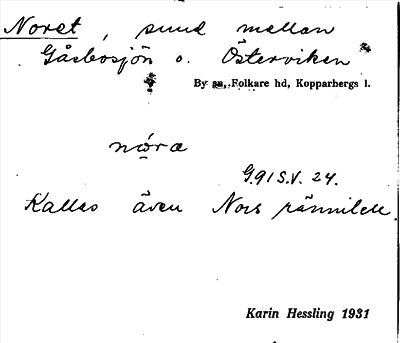 Noret, sund mellan
Gåsbosjön o. Österviken
By sn, Folkare hd, Kopparbergs l.
nóra
G.91 S.V. 24.
Kallas även Nors rännilen.
Karin Hessling 1931